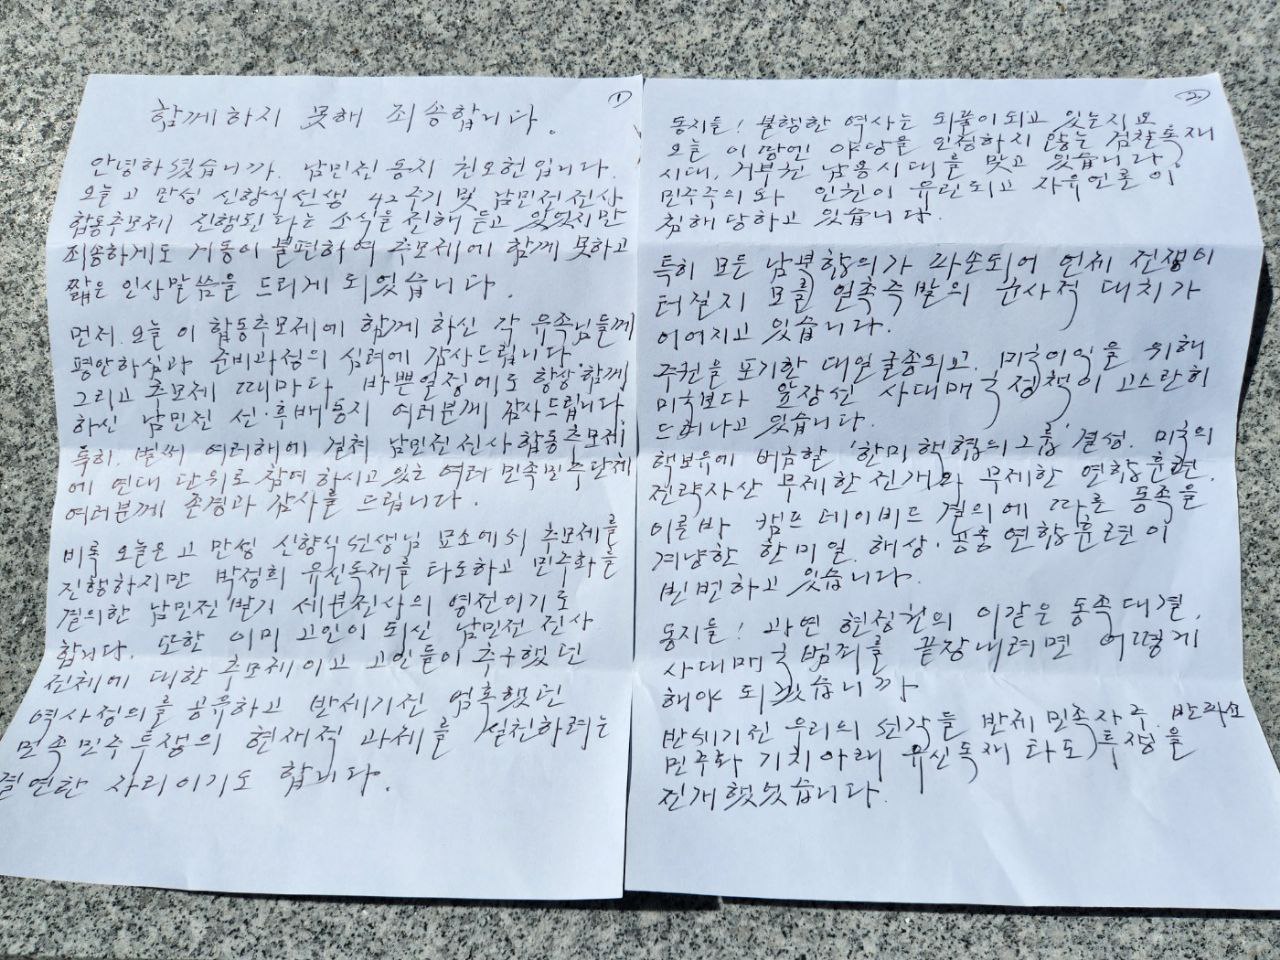 ①
함께하지 못해 죄송합니다.
안녕하셨습니까. 남민전 동지 권오헌입니다.
오늘 고 만성 신향식선생 42주기 및 남민전 전사
합동추모제 진행된다는 소식을 전해 듣고 있었지만
죄송하게도 거동이 불편하여 추모제에 함께 못하고
짧은 인사말씀을 드리게 되었습니다.
먼저. 오늘 이 합동추모제에 함께 하신 각 유족님들께
평안하심과 준비과정의 심려에 감사드립니다.
그리고 추모제 때마다 바쁜일정에도 항상 함께
하신 남민전 선·후배동지 여러분께 감사드립니다.
특히. 벌써 여러해에 걸쳐 남민전 전사 합동추모제
에 연대 단위로 참여 하시고 있는 여러 민족민주단체
여러분께 존경과 감사를 드립니다.
비록 오늘은 고 만성 신향식 선생님 묘소에서 추모제를
진행하지만 박정희 유신독재를 타도하고 민주화를
결의한 남민전 발기 세분전사의 영전이기도
합니다. 또한 이미 고인이 되신 남민전 전사
전체에 대한 추모제이고 고인들이 추구했던
역사정의를 공유하고 반세기전 엄혹했던
민족민주투쟁의 현재적 과제를 실천하려는
결연한 자리이기도 합니다.
②
동지들! 불행한 역사는 되풀이되고 있는지요
오늘 이 땅엔 야당을 인정하지 않는 검찰독재
시대, 거부권 남용시대를 맞고 있습니다.
민주주의와 인권이 유린되고 자유언론이
침해당하고 있습니다.
특히 모든 남북합의가 파손되어 언제 전쟁이
터질지 모를 일촉즉발의 군사적 대치가
이어지고 있습니다.
주권을 포기한 대일굴종외교. 미국이익을 위해
미국보다 앞장선 사대매국정책이 고스란히
드러나고 있습니다.
핵보유에 버금할 '한미핵협의그룹' 결성. 미국의
전략자산 무제한 전개와 무제한 연합훈련.
이른바 캠프 데이비드 결의에 따른 동족을
겨냥한 한미일. 해상·공중 연합훈련이
빈번하고 있습니다.
동지들! 과연 현정권의 이같은 동족대결.
사대매국범죄를 끝장내려면 어떻게
해야 되겠습니까
반세기전 우리의 선각들 반제민족자주. 반파쇼
민주화 기치아래 유신독재 타도 투쟁을
전개했었습니다.